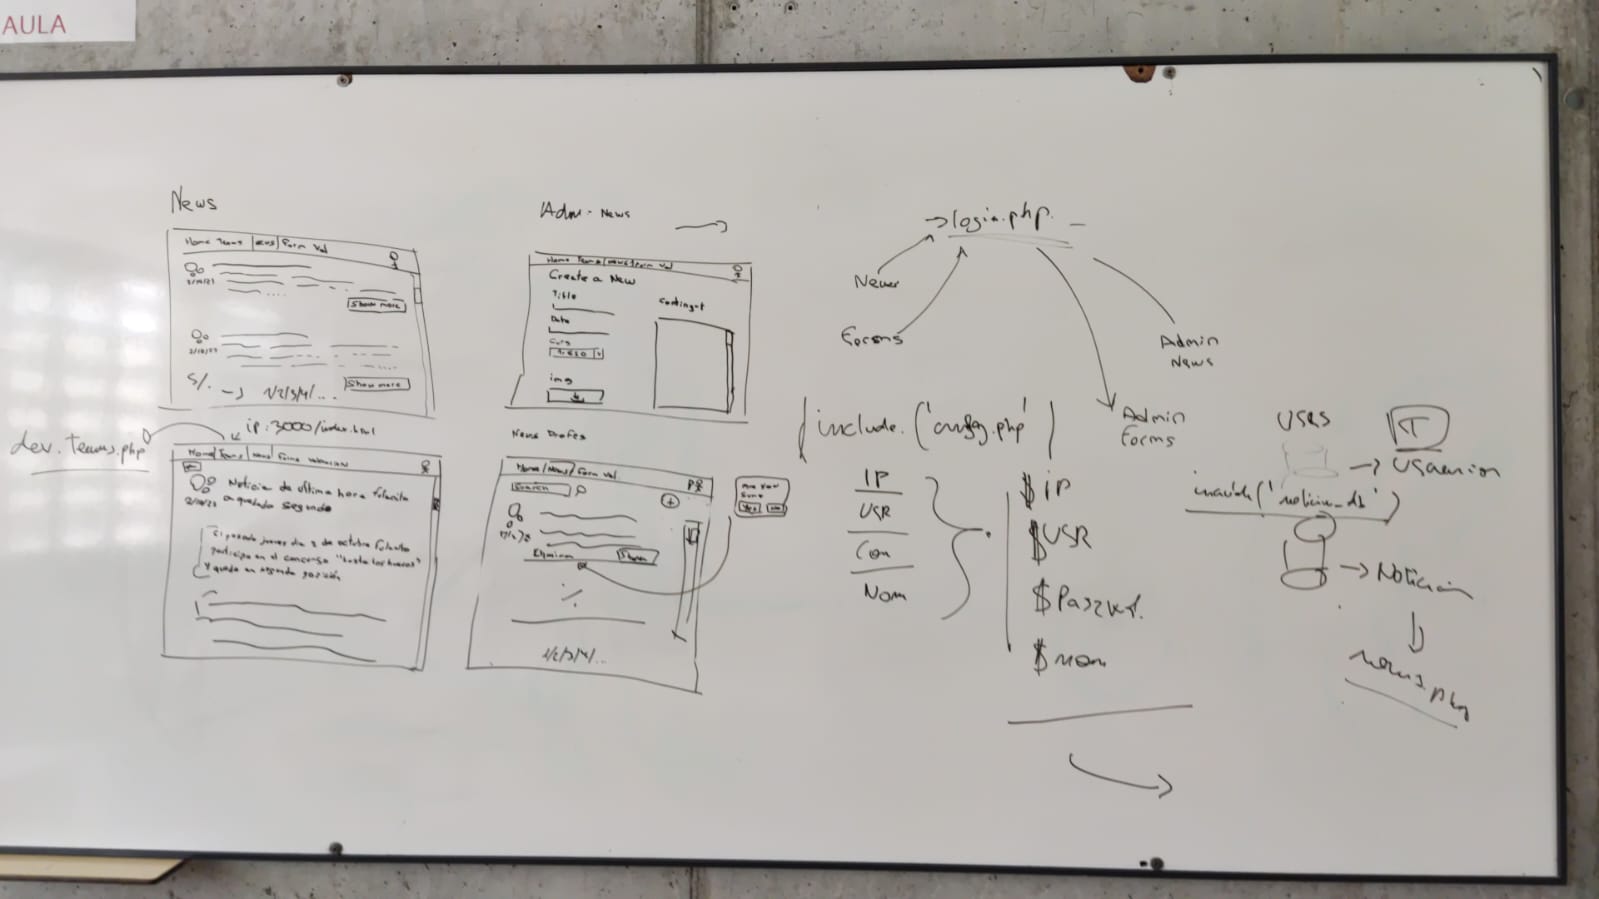 AULA
News
Home Teams News Form Val
2/10/23
Show more
2/10/23
Show more
1/2/3/4/...
ip:3000/index.html
dev.teams.php
Home Teams News Forms
Noticia de última hora fulanito
a quedado segundo
El pasado jueves dia 3 de octubre fulanito
participo en el concurso "hasta los huevos"
y quedo en segunda posición
Adm. News
Home Teams News Form Val
Create a New
Title
Date
Curs
img
Contingut
News Profes
Home News Form Val
Search
Eliminar
Show
1/2/3/4/...
Are you
sure
Yes No
login.php
News
Forms
Admin
News
Admin
Forms
include.('config.php')
IP
USR
Con
Nom
$IP
$USR
$Passwd.
$nom
USRS
T
noticias_db
Noticias
news.php